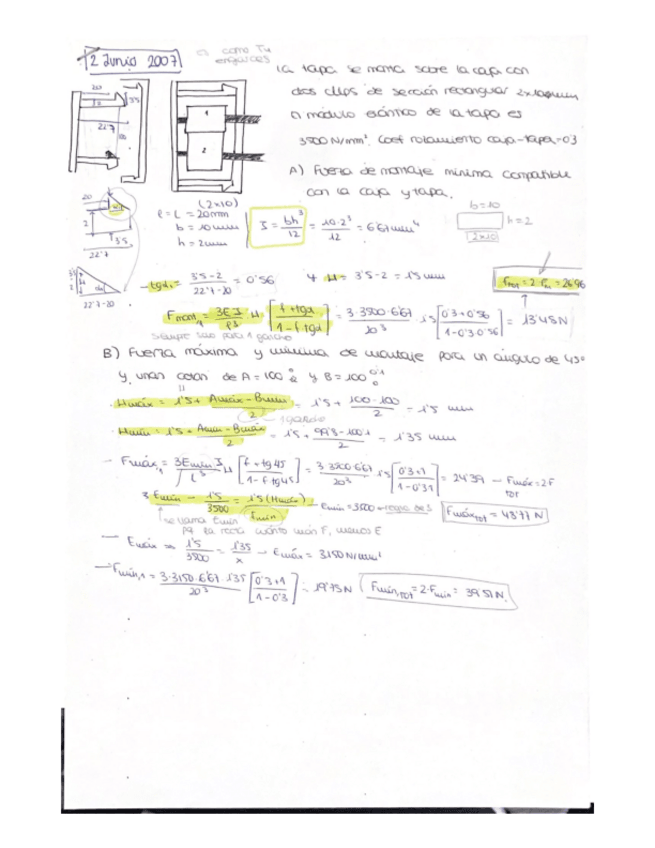 12 Junio 2007
como Tu
engarces
La tapa se monta sobre la caja con
dos clips de sección rectangular 2x10mm
módulo elástico de la tapa es
3500 N/mm². Coef rozamiento caja-tapa=0'3
A) Fuerza de montaje mínima compatible
con la caja y tapa.
20
22'7
3'5
20
2
3'5
22'7
(2x10)
l = L = 20mm
b = 10mm
h = 2mm
I = bh³/12 = 10·2³/12 = 6'67mm⁴
b=10
h=2
2x10
22'7-20
tgα = 3'5-2 / 22'7-20 = 0'56
y H = 3'5-2 = 1'5 mm
F tot = 2·F = 26'96
Fmont,1 = 3EI/l³ · H · [f+tgα / 1-f·tgα] = 3·3500·6'67/20³ · 1'5 [0'3+0'56 / 1-0'3·0'56] = 13'48N
siempre solo para 1 gancho
B) Fuerza máxima y mínima de montaje para un ángulo de 45º
y unas cotas de A=100 y B=100 0'1 0
Hmáx = 1'5 + Amáx-Bmin / 2 = 1'5 + 100-100 / 2 = 1'5 mm
1 gancho
Hmin = 1'5 + Amin-Bmáx / 2 = 1'5 + 99'8-100'1 / 2 = 1'35 mm
- Fmáx,1 = 3Emin I/L³ H [f+tg45 / 1-f tg45] = 3·3500·6'67/20³ 1'5 [0'3+1 / 1-0'3·1] = 24'39 - Fmáx=2F tot
Emin - 1'5/3500 = 1'5 (Hmáx) - Emin=3500 - regla de 3
Fmáx tot = 48'77 N
se llama Emin
pq la recta cuánto más F, menos E
- Emáx = 1'5/3500 = 1'35/x - Emáx = 3150 N/mm²
- Fmin,1 = 3·3150·6'67·1'35 / 20³ [0'3+1 / 1-0'3] = 19'75N
Fmin,TOT = 2·Fmin = 39'51N.